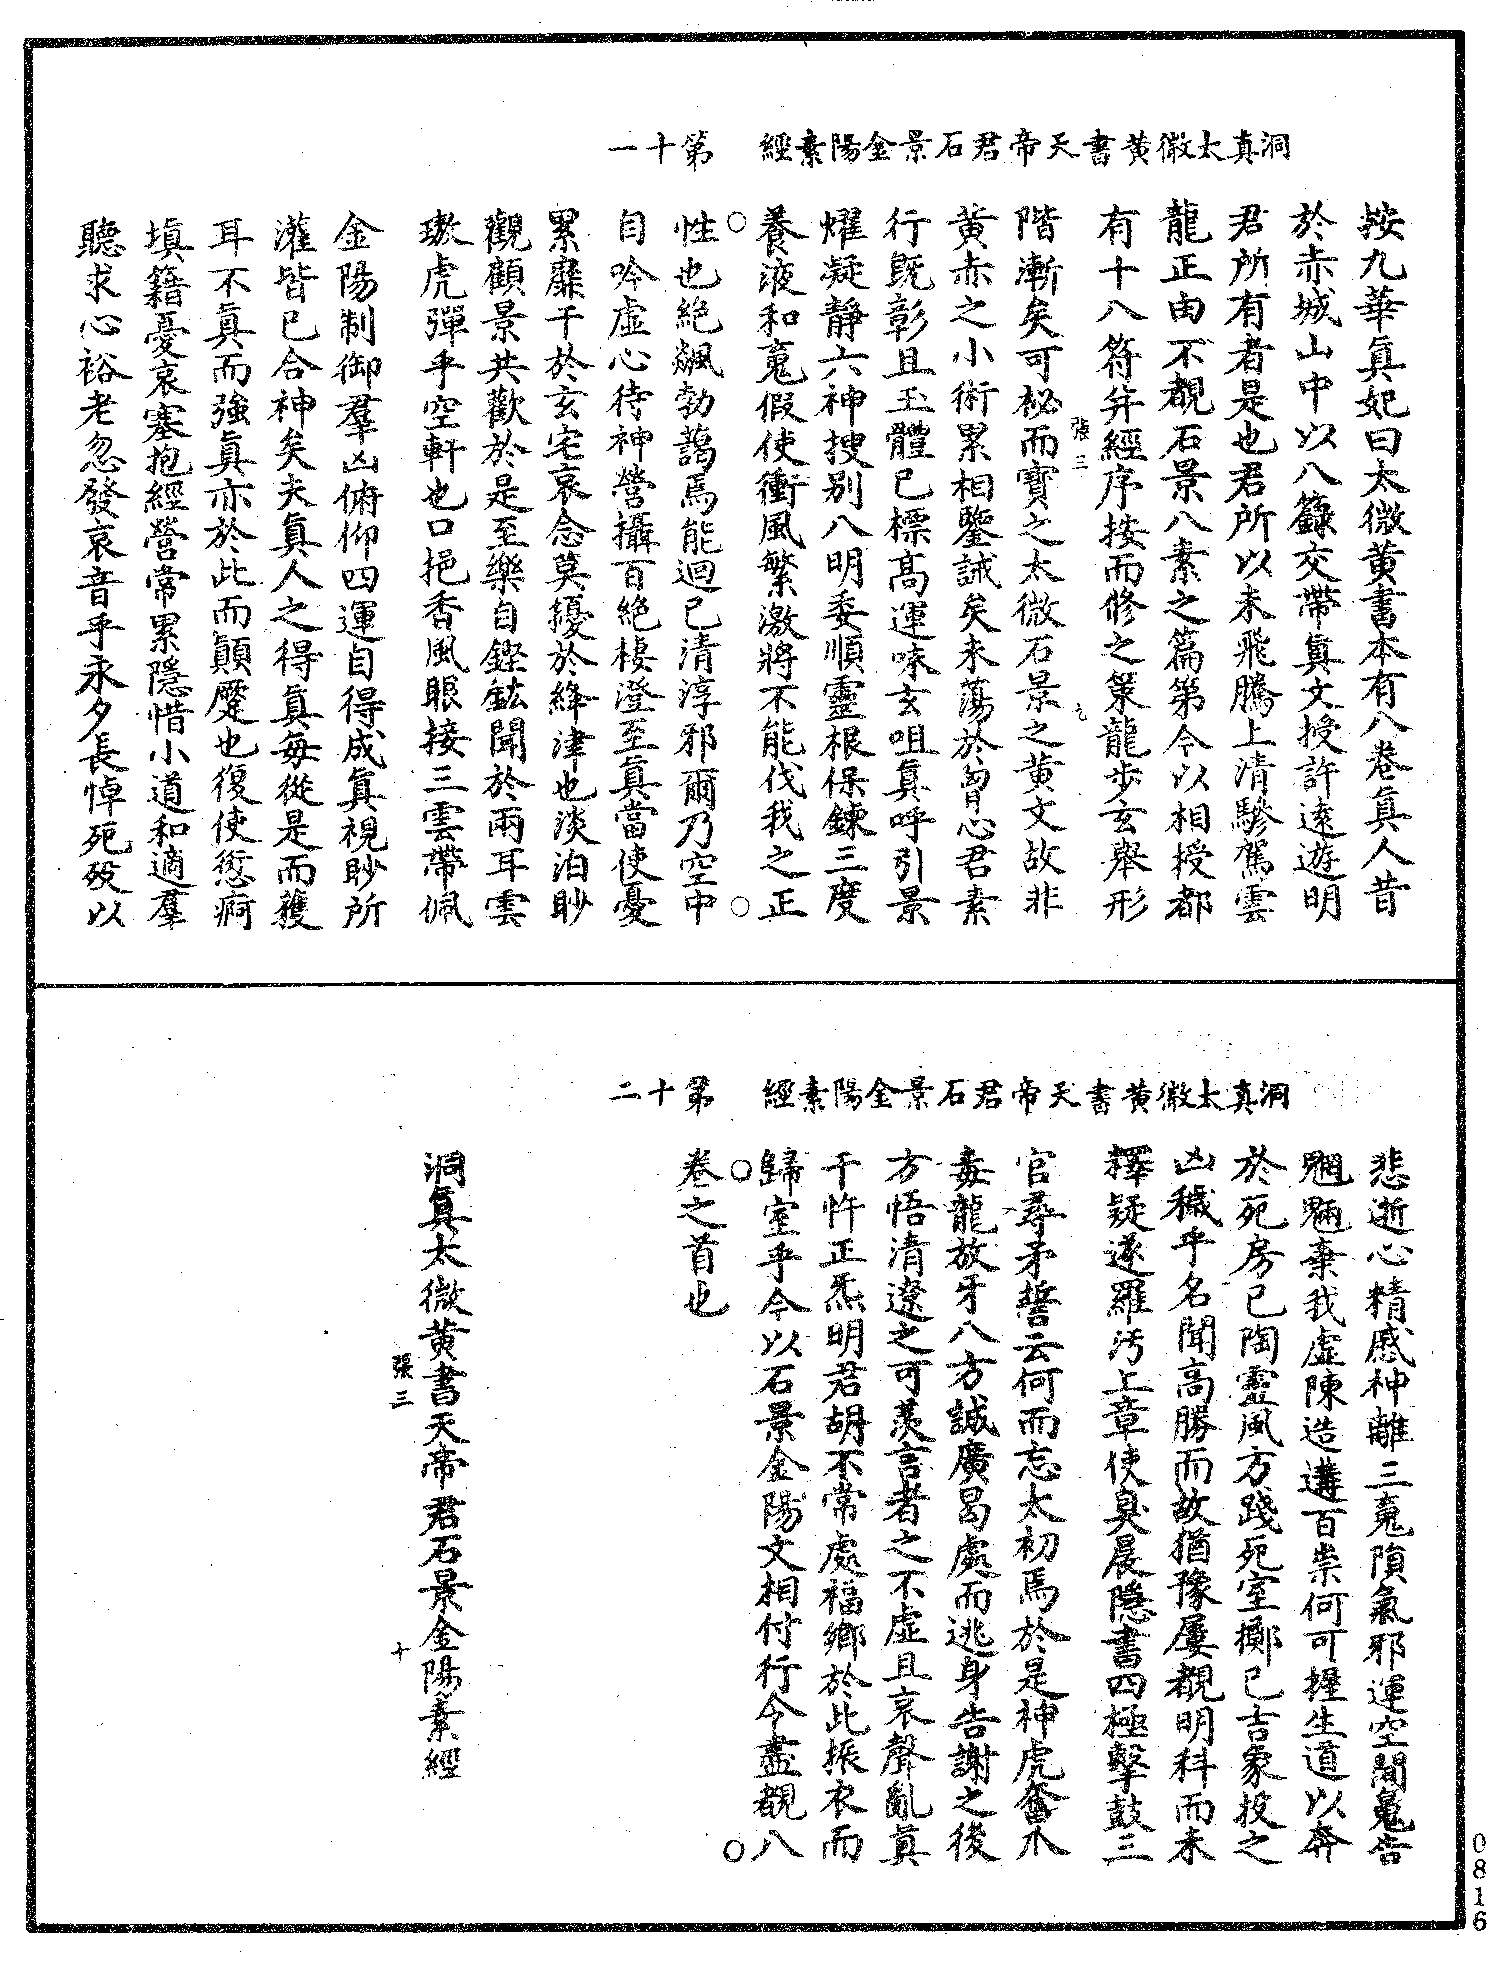 洞真太微黃書天帝君石景金陽素經　第十一
按九華真妃曰太微黃書本有八卷真人昔
於赤城山中以八籙交帶真文授許遠遊明
君所有者是也君所以未飛騰上清驂駕雲
龍正由不覩石景八素之篇第今以相授都
有十八符并經序按而修之策龍步玄舉形
張三　九
階漸矣可祕而寶之太微石景之黃文故非
黃赤之小術累相鑒誡矣未蕩於胷心君素
行既彰且玉體已標高運味玄咀真呼引景
燿凝靜六神搜別八明委順靈根保鍊三度
養液和䰟假使衝風繁激將不能伐我之正
性也絕飆勃藹焉能迴已清淳邪爾乃空中
自吟虛心待神營攝百絕棲澄至真當使憂
累靡干於玄宅哀念莫擾於絳津也淡泊眇
觀顧景共歡於是至樂自鏗鈜聞於兩耳雲
璈虎彈乎空軒也口挹香風眼接三雲帶佩
金陽制御羣凶俯仰四運自得成真視眇所
灌皆已合神矣夫真人之得真每從是而獲
耳不真而強真亦於此而顛蹷也復使愆痾
填籍憂哀塞抱經營常累隱惜小道和適羣
聽求心裕老忽發哀音乎永夕長悼死歿以
洞真太微黃書天帝君石景金陽素經　第十二
悲逝心精感神離三䰟隕氣邪運空間鬼告
魍魎棄我虛陳造遘百祟何可握生道以奔
於死房已陶靈風方踐死室擲已吉象投之
凶穢乎名聞高勝而故猶豫屢覩明科而未
擇疑遂羅汚上章使臭晨隱書四極擊鼓三
官尋矛誓云何而忘太初焉於是神虎奮爪
毒龍放牙八方誠廣曷處而逃身告謝之後
方悟清遼之可羨言者之不虛且哀聲亂真
干忤正炁明君胡不常處福鄉於此振衣而
歸室乎今以石景金陽文相付行今盡覩八
卷之首也
洞真太微黃書天帝君石景金陽素經
張三　十
0816